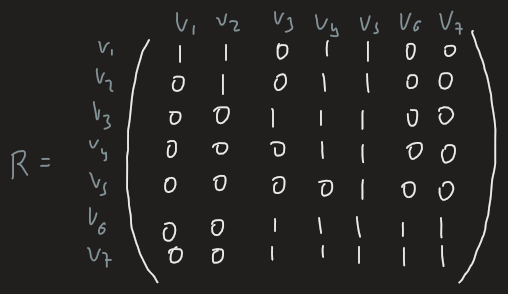 V₁ V₂ V₃ V₄ V₅ V₆ V₇
V₁ 1 1 0 1 1 0 0
V₂ 0 1 0 1 1 0 0
V₃ 0 0 1 1 1 0 0
V₄ 0 0 0 1 1 0 0
R =
V₅ 0 0 0 0 1 0 0
V₆ 0 0 1 1 1 1 1
V₇ 0 0 1 1 1 1 1